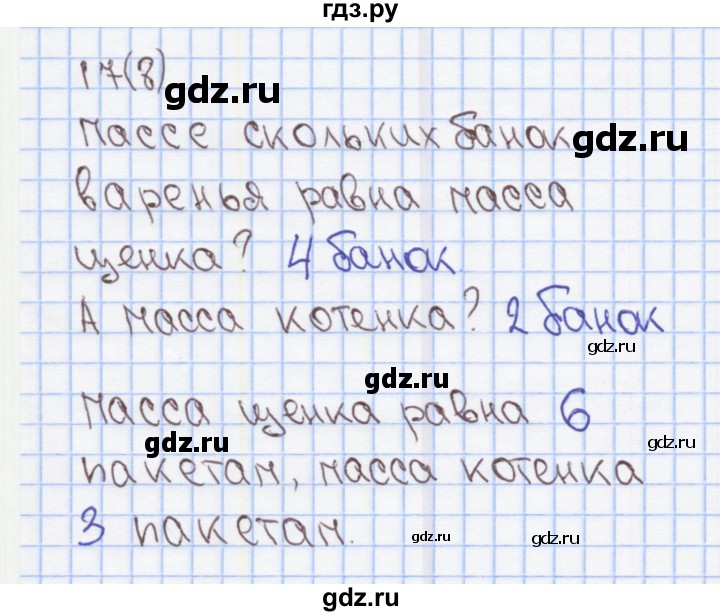 гдз.ру
17(8)
gdz.ru
Массе скольких банок
gdz.ru
варенья равна масса
щенка? 4 банок
А масса котенка? 2 банок
gdz.ru
gdz.ru
Масса щенка равна 6
gdz.ru
gdz.ru
пакетам, масса котенка
3 пакетам.
gdz.ru
gdz.ru
gdz.ru